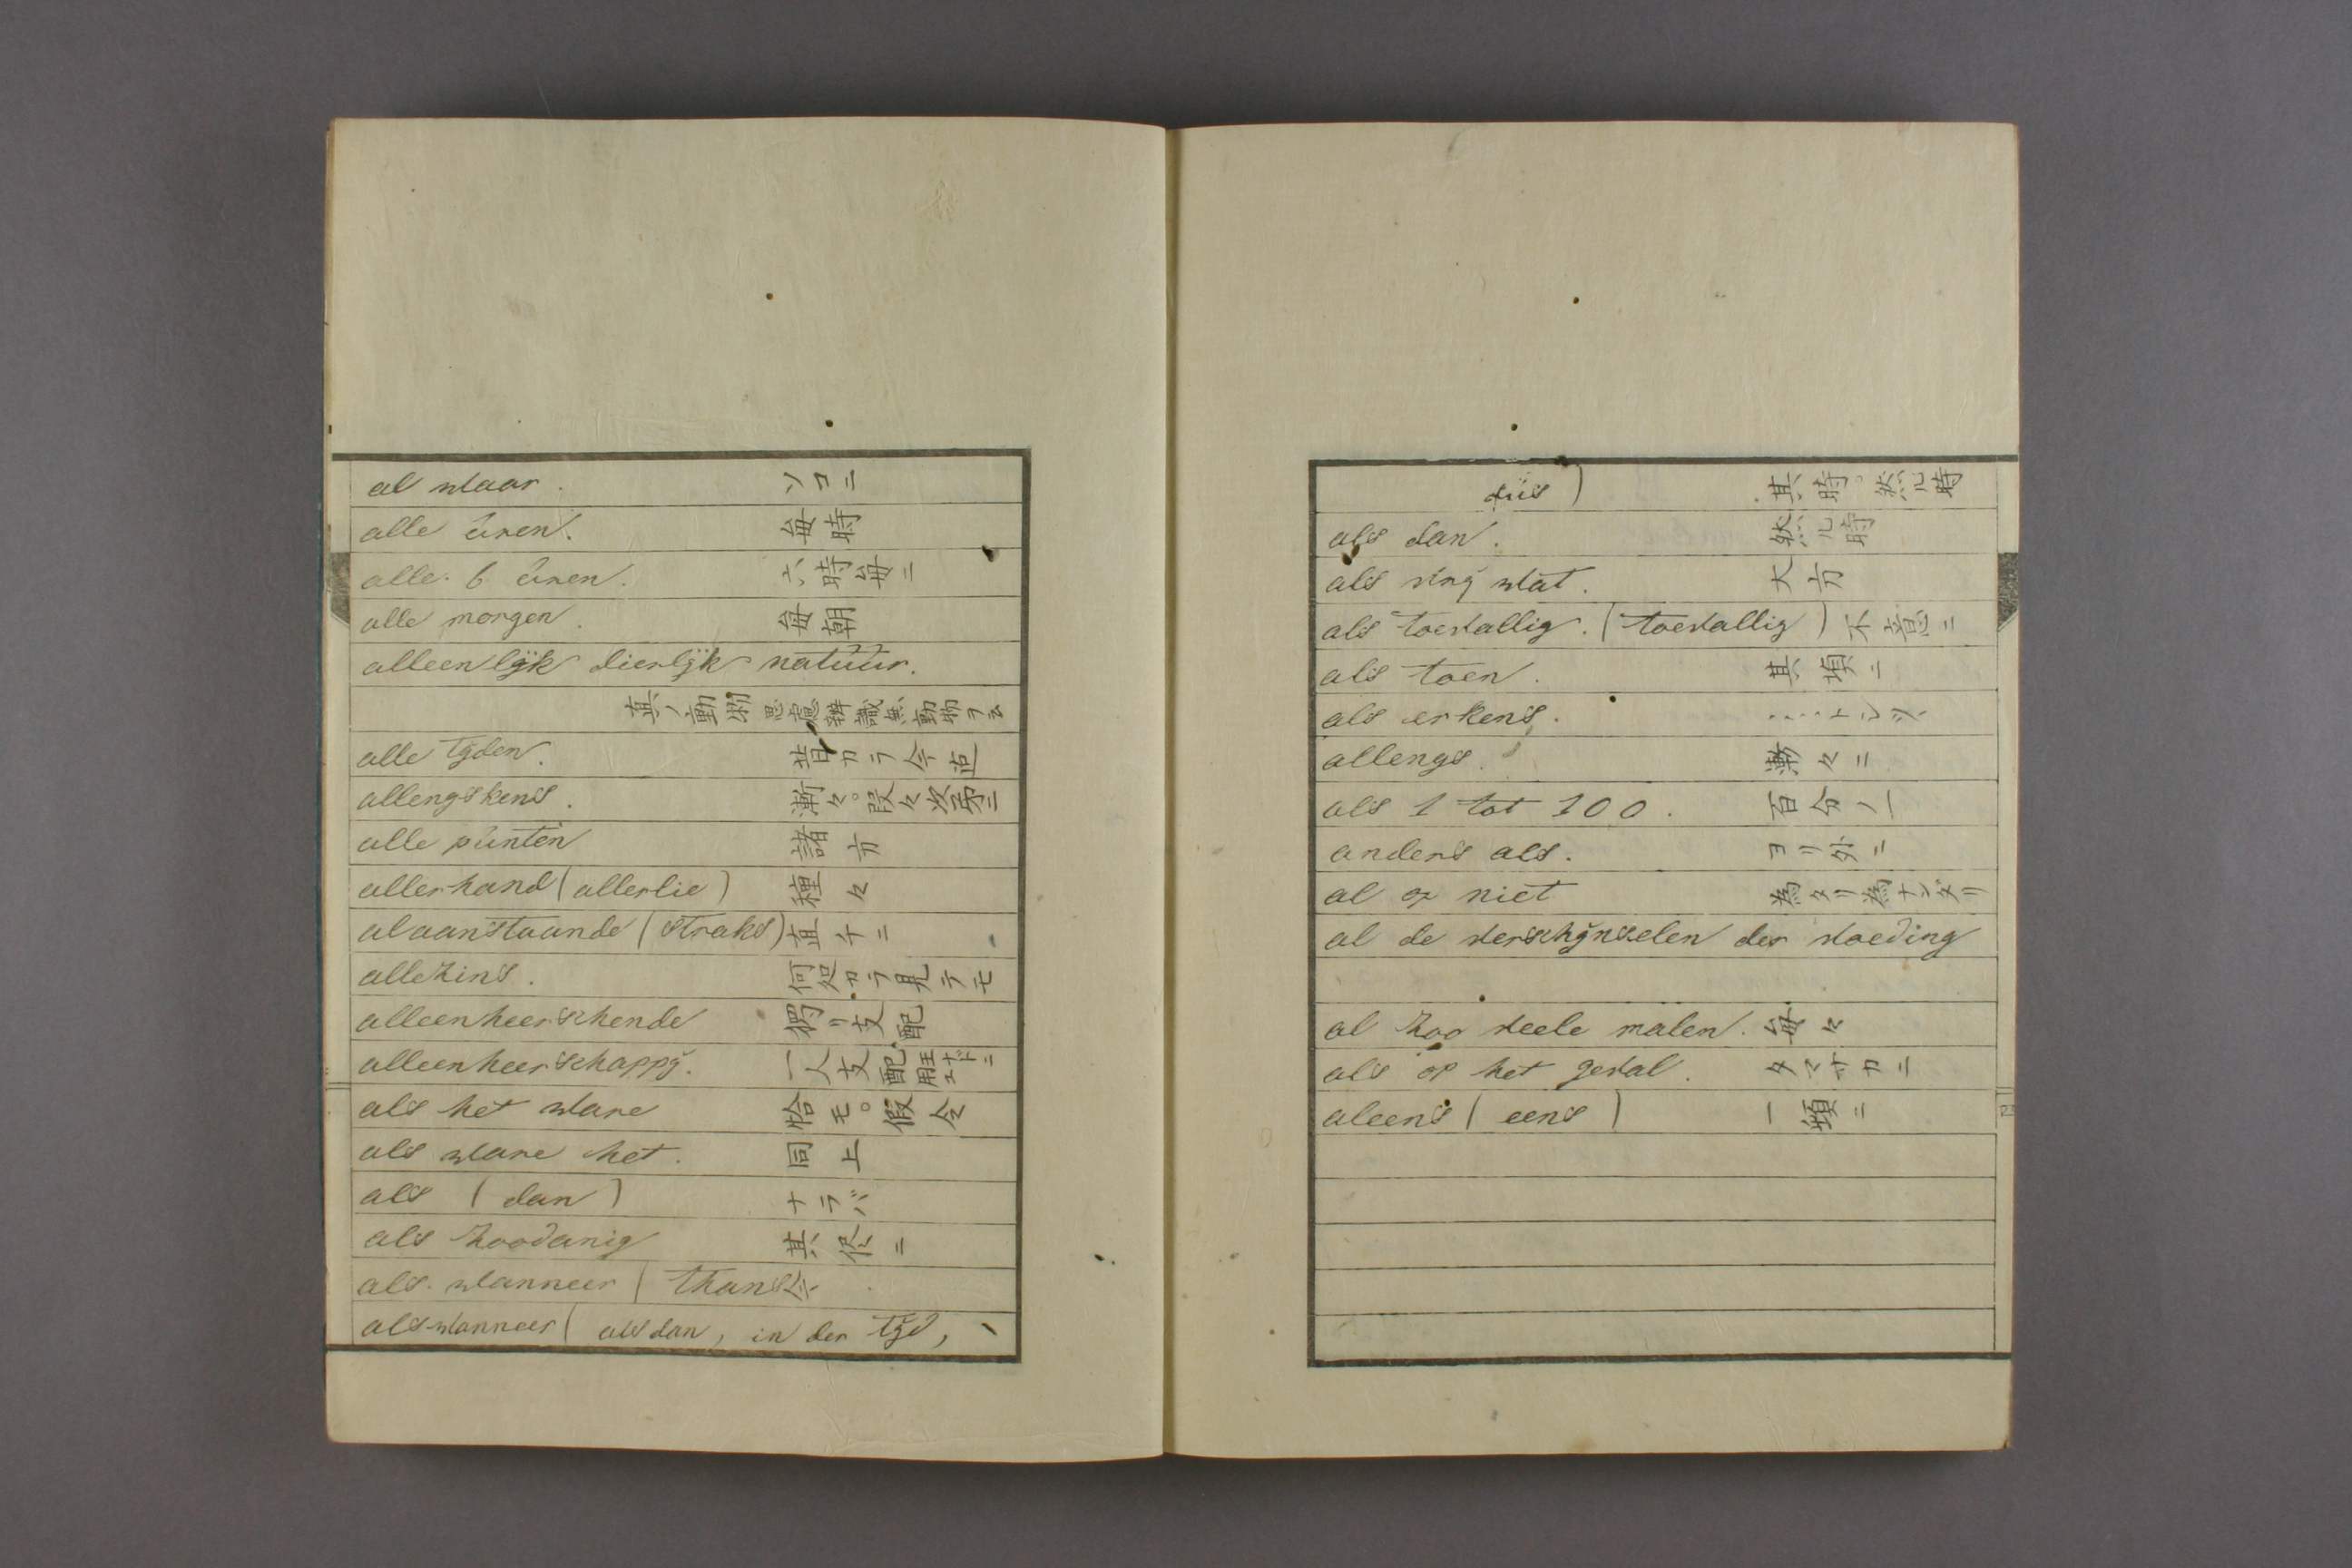 al waar. ソコニ
alle ùren. 毎時
alle 6 ùren. 六時毎ニ
alle morgen. 毎朝
alleenlijk dierlijk natuur.
真ノ動物 思慮辨識無動物ヲ云
alle tijden. 昔カラ今迠
allengskens. 漸々。段々次第ニ
alle pùnten 諸方
allerhand (allerlie) 種々
alaanstaande (straks) 直チニ
allezins. 何処カラ見テモ
alleenheerschende 獨リ支配
alleenheerschappij. 一人支配
als het ware 恰モ。假令
als ware het. 同上
als (dan) ナラバ
als zoodanig 其侭ニ
als wanneer (thans 今
als wanneer (als dan, in den tijd,
dùs) 其時。然ル時
als dan. 然ル時
als vrij wat. 大方
als toevallig. (toevallig) 不意ニ
als toen. 其頃ニ
als erkens.
allengs. 漸々ニ
als 1 tot 100. 百分ノ一
anders als. ヨリ外ニ
al op niet 為タリ為ナンダリ
al de verschijnselen der voeding
al zoo veele malen. 毎々
als op het geval. タマサカニ
aleens (eens) 一頓ニ